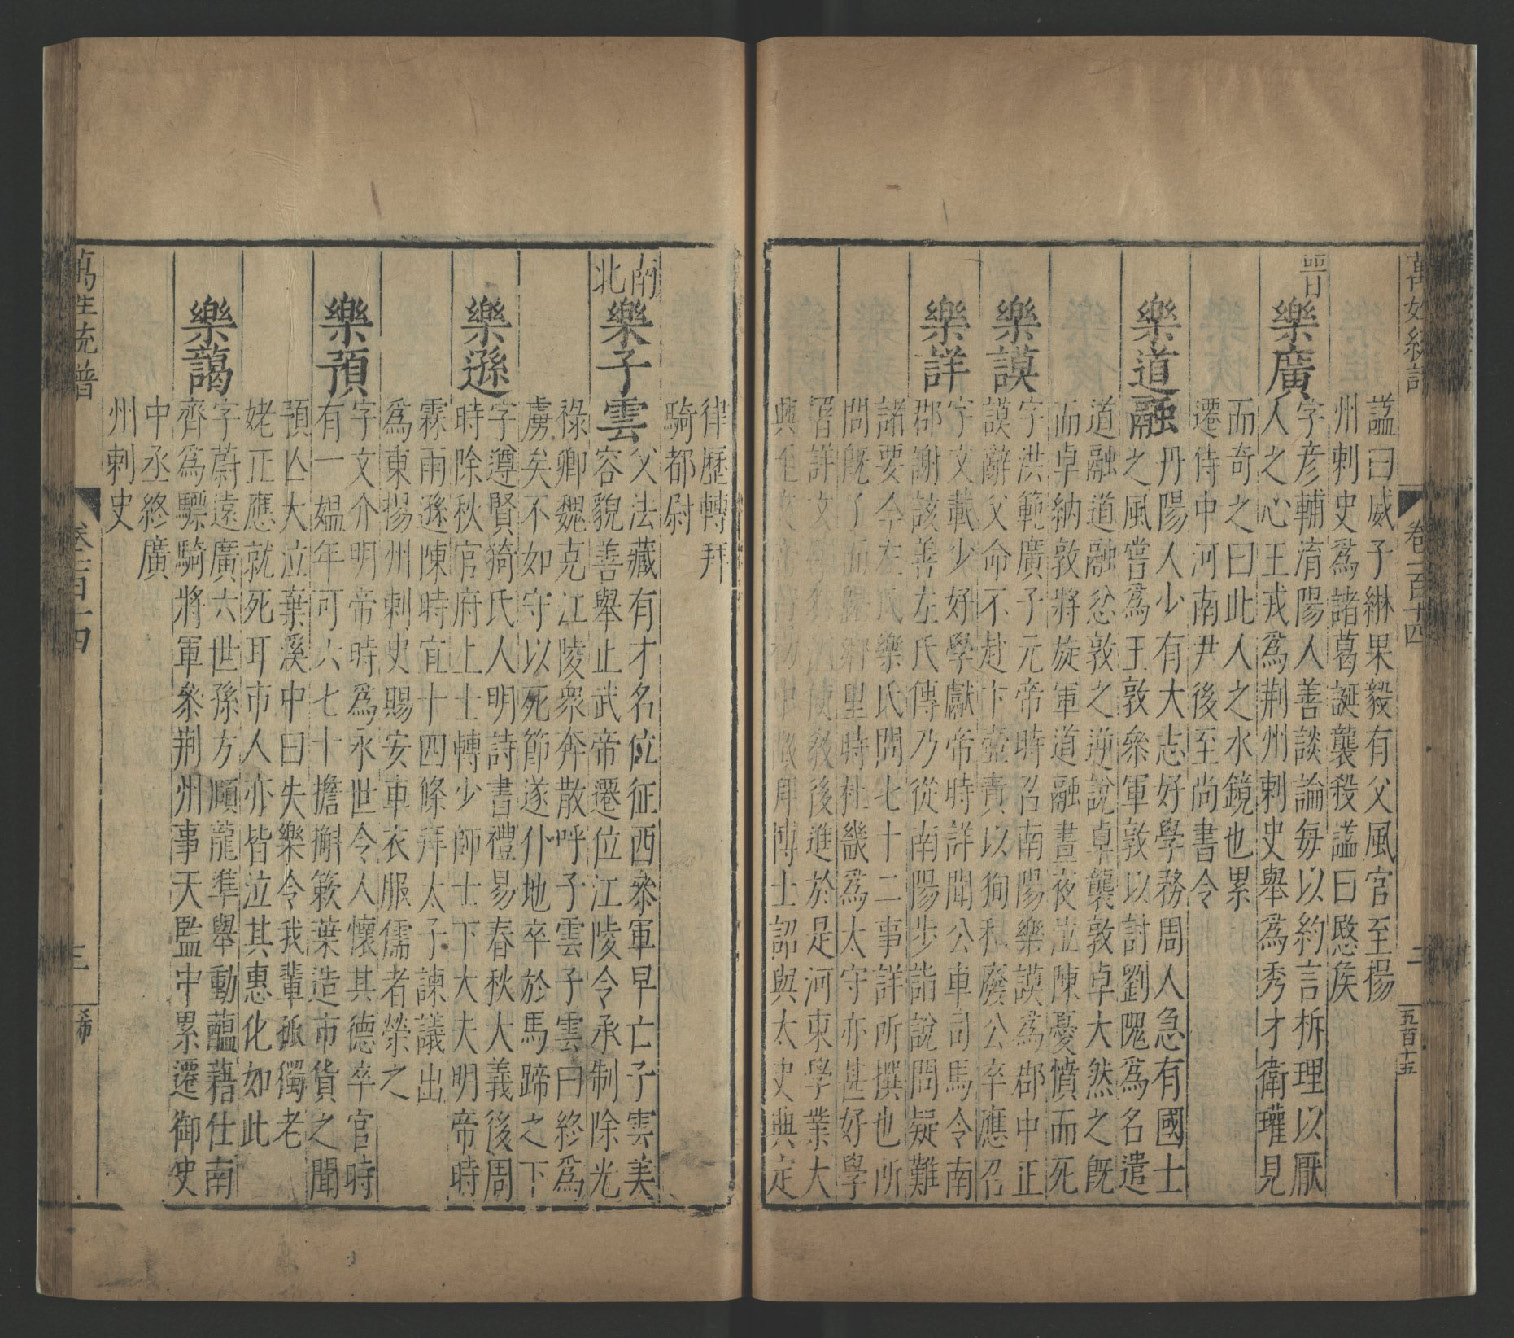 萬姓統譜
卷一百十四
二
五百十五
謚曰威子綝果毅有父風官至揚
州刺史爲諸葛誕襲殺謚曰愍侯
晉
樂廣
字彦輔淯陽人善談論每以約言析理以厭
人之心王戎爲荆州刺史舉爲秀才衛瓘見
而奇之曰此人之水鏡也累
遷侍中河南尹後至尚書令
樂道融
丹陽人少有大志好學務周人急有國士
之風嘗爲王敦叅軍敦以討劉隗爲名遣
道融道融忿敦之逆說卓襲敦卓大然之旣
而卓納敦將旋軍道融晝夜泣陳憂憤而死
樂謨
字洪範廣子元帝時名南陽樂謨爲郡中正
謨辭父命不赴卞壼責以狥私廢公卒應召
樂詳
字文載少好學獻帝時詳聞公車司馬令南
郡謝該善左氏傳乃從南陽步詣說問疑難
諸要今左氏樂氏問七十二事詳所撰也所
問旣了而歸鄉里時杜畿爲太守亦甚好學
署詳文學祭酒使敎後進於是河東學業大
興至文帝黃初中徵拜博士詔與太史典定
律歷轉拜
騎都尉
南北
樂子雲
父法藏有才名位征西叅軍早亡子雲美
容貌善舉止武帝遷位江陵令承制除光
祿卿魏克江陵衆奔散呼子雲子雲曰終爲
虜矣不如守以死節遂仆地卒於馬蹄之下
樂遜
字遵賢猗氏人明詩書禮易春秋大義後周
時除秋官府上士轉少師士下大夫明帝時
霖雨遜陳時宜十四條拜太子諫議出
爲東揚州刺史賜安車衣服儒者榮之
樂預
字文介明帝時爲永世令人懷其德卒官時
有一媪年可六七十擔槲簌葉造市貨之聞
預亾大泣棄溪中曰失樂令我輩孤獨老
姥正應就死耳市人亦皆泣其惠化如此
樂藹
字蔚遠廣六世孫方頤龍準舉動醖藉仕南
齊爲驃騎將軍叅荆州事天監中累遷御史
中丞終廣
州刺史
萬姓統譜
卷一百十四
三